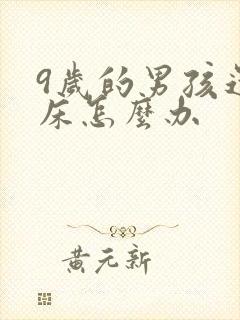 9歲的男孩
床怎麼办
黃元新